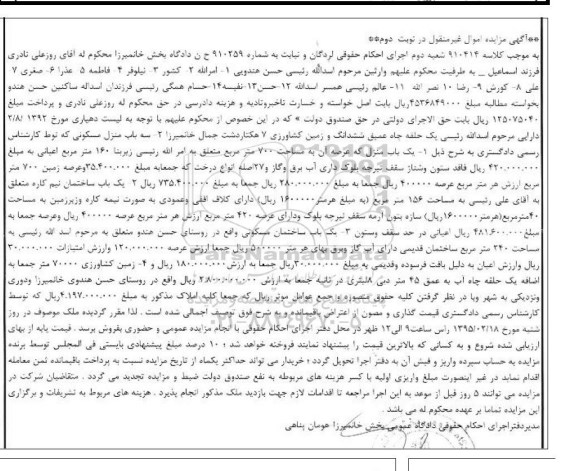 **آگهی مزایده اموال غیرمنقول در نوبت دوم**
به موجب کلاسه ۹۱۰۴۱۴ شعبه دوم اجرای احکام حقوقی لردگان و نیابت به شماره ۹۱۰۲۵۹ ح ن دادگاه بخش خانمیرزا محکوم له آقای روزعلی نادری
فرزند اسماعیل _ به طرفیت محکوم علیهم وارثین مرحوم اسدالله رئیسی حسن هندویی ۱- امرالله ۲- کشور ۳- نیلوفر ۴- فاطمه ۵- عذرا ۶- صغری ۷-
علی ۸- کورش ۹- رضا ۱۰ نصر الله ۱۱- عالم رئیسی همسر اسدالله ۱۲-حسن۱۳-نفیسه۱۴-حسام همگی رئیسی فرزندان اسداله ساکنین حسن هندو
بخواسته مطالبه مبلغ ۴۵۳۶۸۴۹۰۰۰ریال بابت اصل خواسته و خسارت تاخیروتادیه و هزینه دادرسی در حق محکوم له روزعلی نادری و پرداخت مبلغ
۱۲۵۰۷۵۰۴۰ ریال بابت حق الاجرای دولتی در حق صندوق دولت » که در این خصوص از محکوم علیهم با توجه به لیست دهیاری مورخ ۱۳۹۲ /۲/۸
دارایی مرحوم اسدالله رئیسی یک حلقه چاه عمیق ششدانگ و زمین کشاورزی ۷ هکتاردشت جمال خانمیرزا ۲- سه باب منزل مسکونی که توط کارشناس
رسمی دادگستری به شرح ذیل ۱- یک باب منزل که عرصه آن به مساحت ۷۰۰ متر مربع متعلق به امر الله رئیسی زیربنا ۱۶۰ متر مربع اعیانی به مبلغ
۴۲۰.۰۰۰.۰۰۰ ریال فاقد ستون وشناژ سقف تیرچه بلوک داری آب برق وگاز و۲۷اصله انواع درخت که جمعابه مبلغ ۳۵.۴۰۰.۰۰۰وعرصه زمین ۷۰۰ متر
مربع ارزش هر متر مربع عرصه ۴۰۰۰۰۰ ریال جمعا به مبلغ ۲۸۰.۰۰۰.۰۰۰ ریال جمعا به مبلغ ۷۳۵.۴۰۰.۰۰۰ ریال ۲- یک باب ساختمان نیم کاره متعلق
به آقای علی رئیسی به مساحت ۱۵۶ متر مربع (به مبلغ هرمتر۱۶۰۰۰۰۰ ریال) دارای کلاف افقی وعمودی به صورت نیمه کاره وزیرزمین به مساحت
۴۰مترمربع(هرمتر۱۶۰۰۰۰۰ریال) سازه بتون آرمه سقف تیرچه بلوک ودارای عرصه ۴۲۰ متر مربع ارزش هر متر مربع عرصه ۴۰۰۰۰۰ ریال وعرصه جمعا به
مبلغ ۴۸۱.۶۰۰.۰۰۰ ریال اعیانی در حد سقف وستون ۳- یک باب ساختمان مسکونی واقع در روستای حسن هندو متعلق به مرحوم اسد الله رئیسی به
مساحت ۲۴۰ متر مربع ساختمان قدیمی دارای آب گاز وبرق بهای هر متر ۵۰۰۰۰۰ ریال جمعا ارزش عرصه ۱۲۰.۰۰۰.۰۰۰ وارزش امتیازات ۳۰.۰۰۰.۰۰۰
ریال وارزش اعیان به دلیل بافت فرسوده وقدیمی به مبلغ ۳۰.۰۰۰.۰۰۰ریال جمعا به ارزش ۱۸۰.۰۰۰.۰۰۰ ریال و ۴- زمین کشاورزی ۷۰۰۰۰ متر جمعا به
اضافه یک حلقه چاه آب به عمق ۴۵ متر دبی ۸لیتری در ثانیه جمعا به ارزش ۲.۸۰۰.۰۰۰.۰۰۰ ریال واقع در روستای حسن هندوی خانمیرزا ودوری
ونزدیکی به شهر وبا در نظر گرفتن کلیه حقوق متصوره و جمع عوامل موثر ریال که جمعا کلیه املاک مذکور به مبلغ ۴.۱۹۷.۰۰۰.۰۰۰ریال که توسط
کارشناس رسمی دادگستری قیمت گذاری و مصون از اعتراض باقیمانده و به شرح فوق توصیف اجمالی شده است . لذا مقرر گردیده ملک موصوف در روز
شنبه مورخ ۱۳۹۵/۰۲/۱۸ راس ساعت۹ الی۱۲ ظهر در محل دفتر اجرای احکام حقوقی با انجام مزایده عمومی و حضوری بفروش برسد . قیمت پایه از بهای
ارزیابی شده شروع و به کسانی که بالاترین قیمت را پیشنهاد نمایند فروخته خواهد شد ، ۱۰ درصد مبلغ پیشنهادی بایستی فی المجلس توسط برنده
مزایده به حساب سپرده واریز و فیش آن به دفتر اجرا تحویل گردد ؛ خریدار می تواند حداکثر یکماه از تاریخ مزایده نسبت به پرداخت باقیمانده ثمن معامله
اقدام نماید در غیر اینصورت مبلغ واریزی اولیه با کسر هزینه های مربوطه به نفع صندوق دولت ضبط و مزایده تجدید می گردد . متقاضیان شرکت در
مزایده می توانند ۵ روز قبل از موعد به این اجرا مراجعه تا اقدامات لازم جهت بازدید ملک مذکور انجام پذیرد . هزینه های مربوط به تشریفات و برگزاری
این مزایده تماما بر عهده محکوم له می باشد .
مدیردفتراجرای احکام حقوقی دادگاه عمومی بخش خانمیرزا هومان پناهی